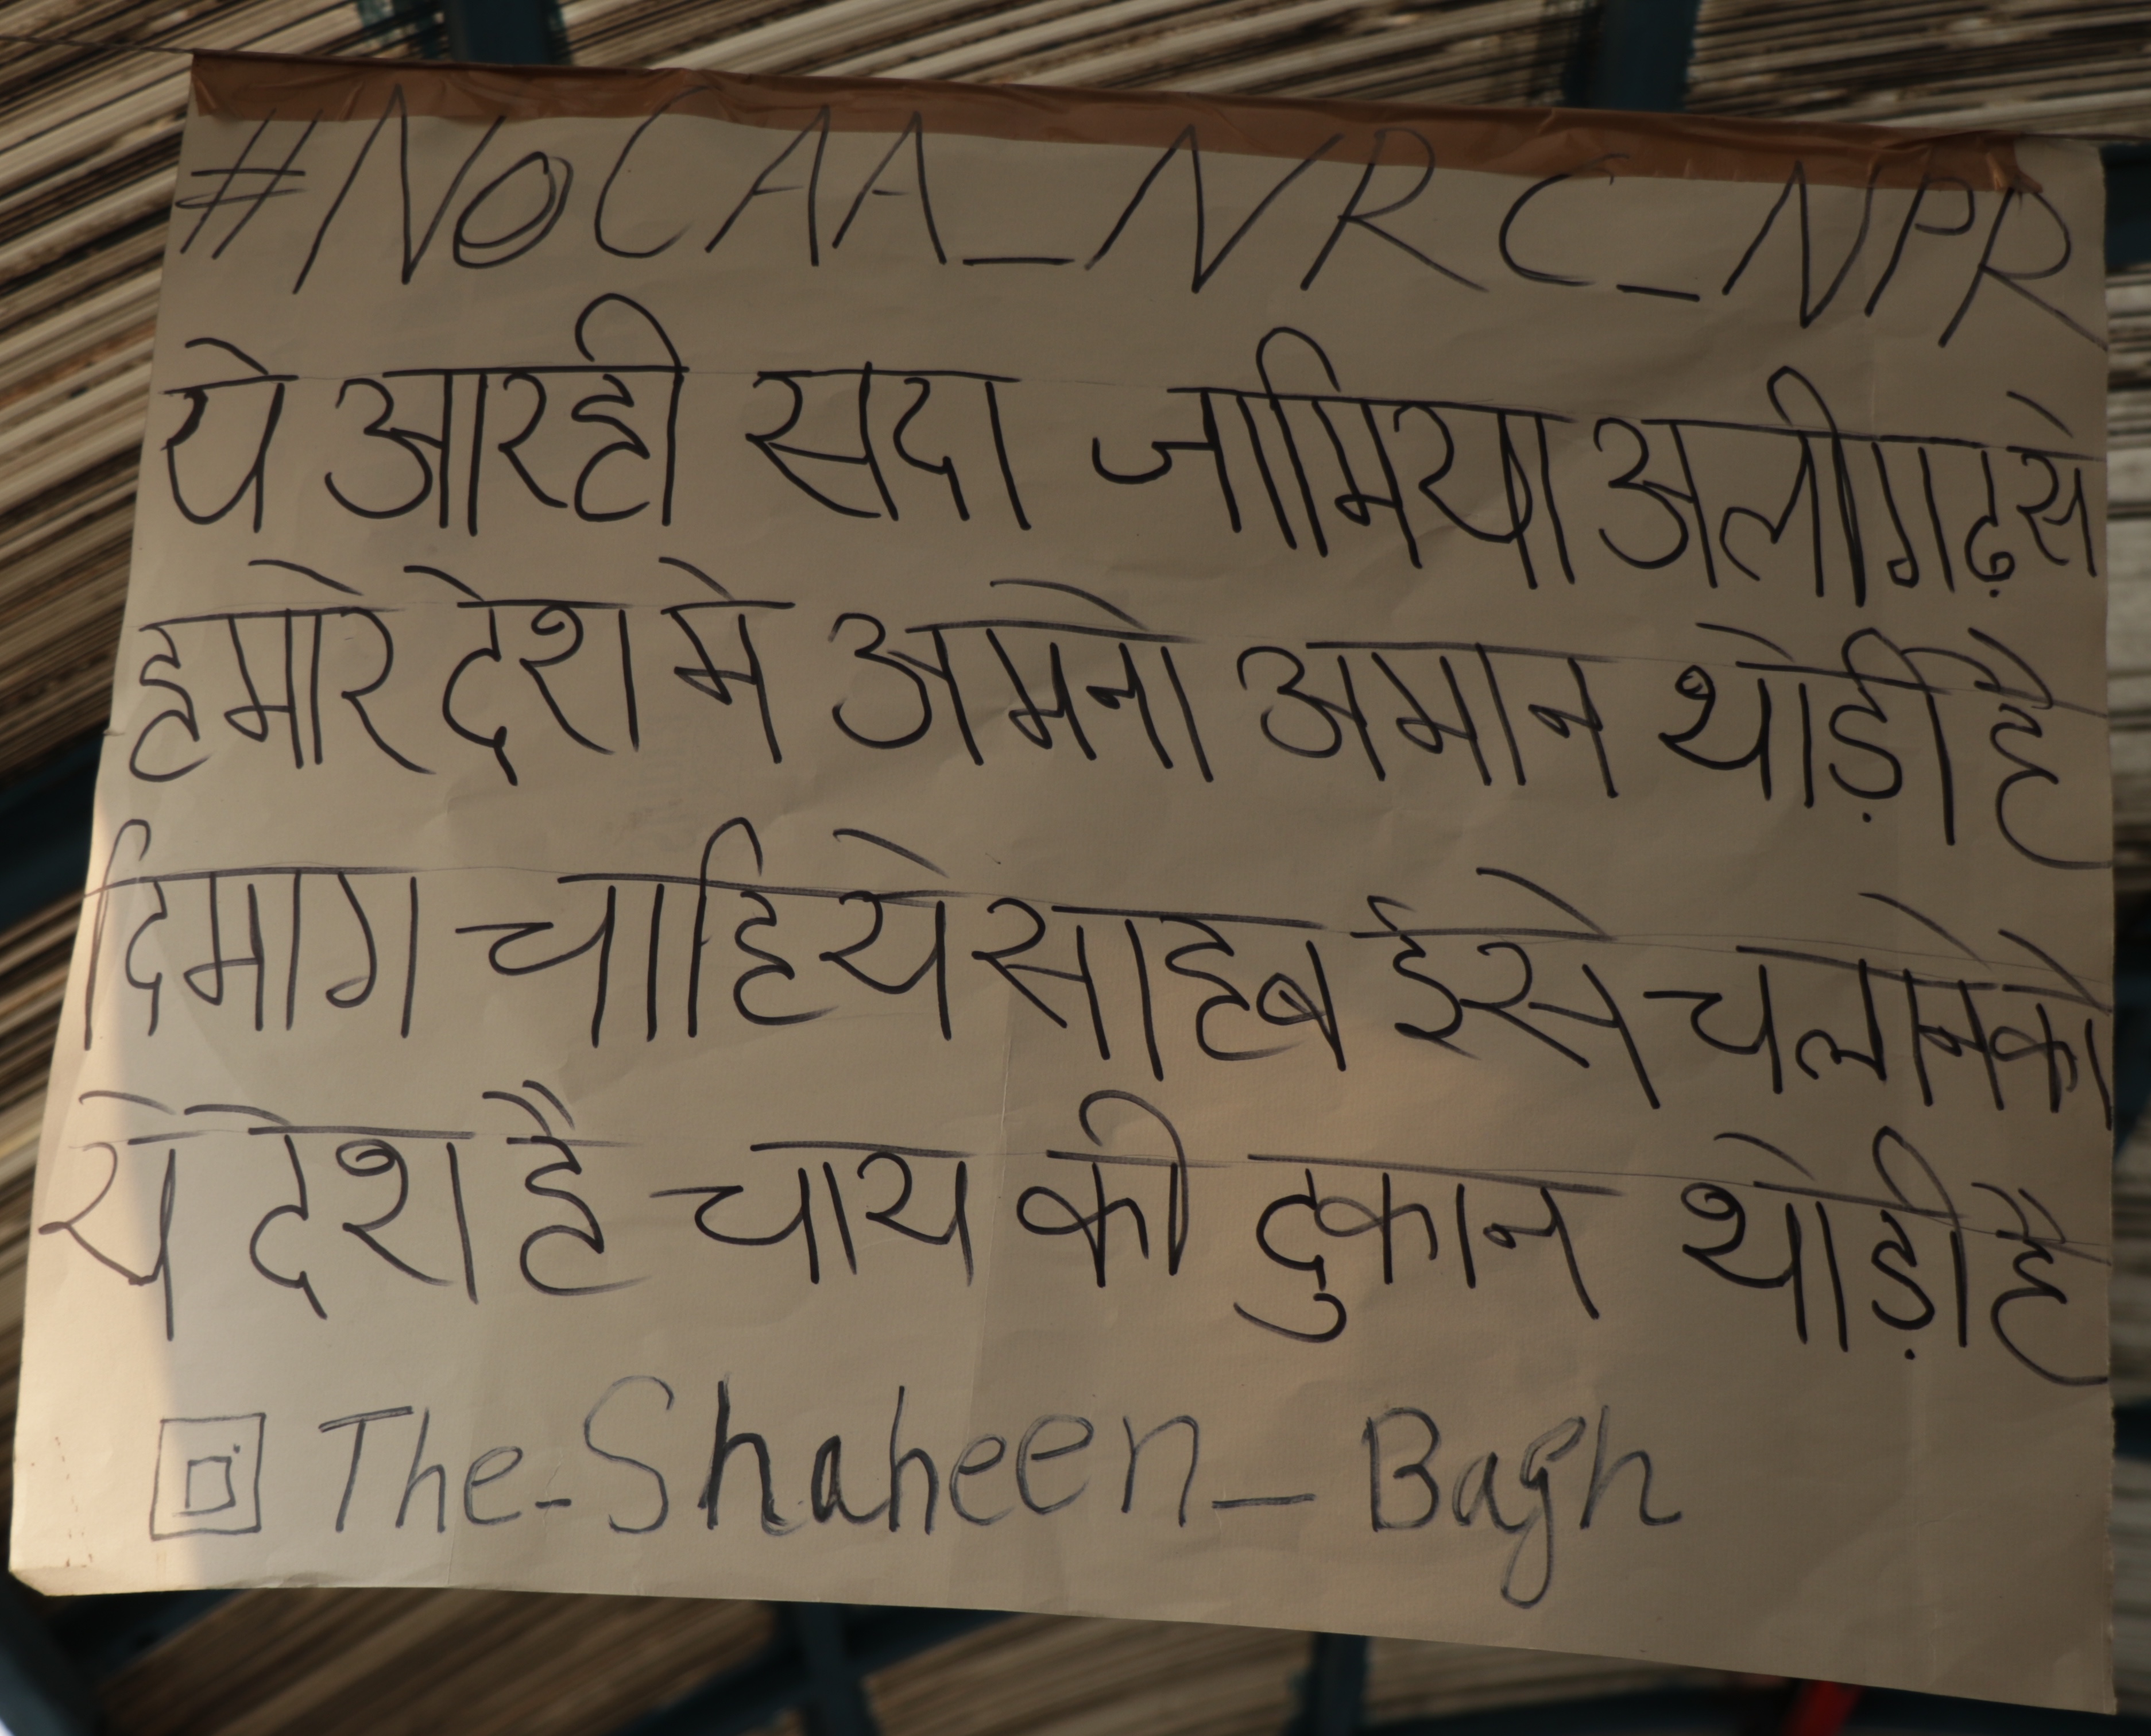 #NoCAA_NRC_NPR
ये आरही सदा जामिया अलीगढ़ से
हमारे देश मे अमनो अमान थोड़ी है
दिमाग चाहिये साहब ईसे चलानेको
ये देश है चाय की दुकान थोड़ी है
The-Shaheen_Bagh